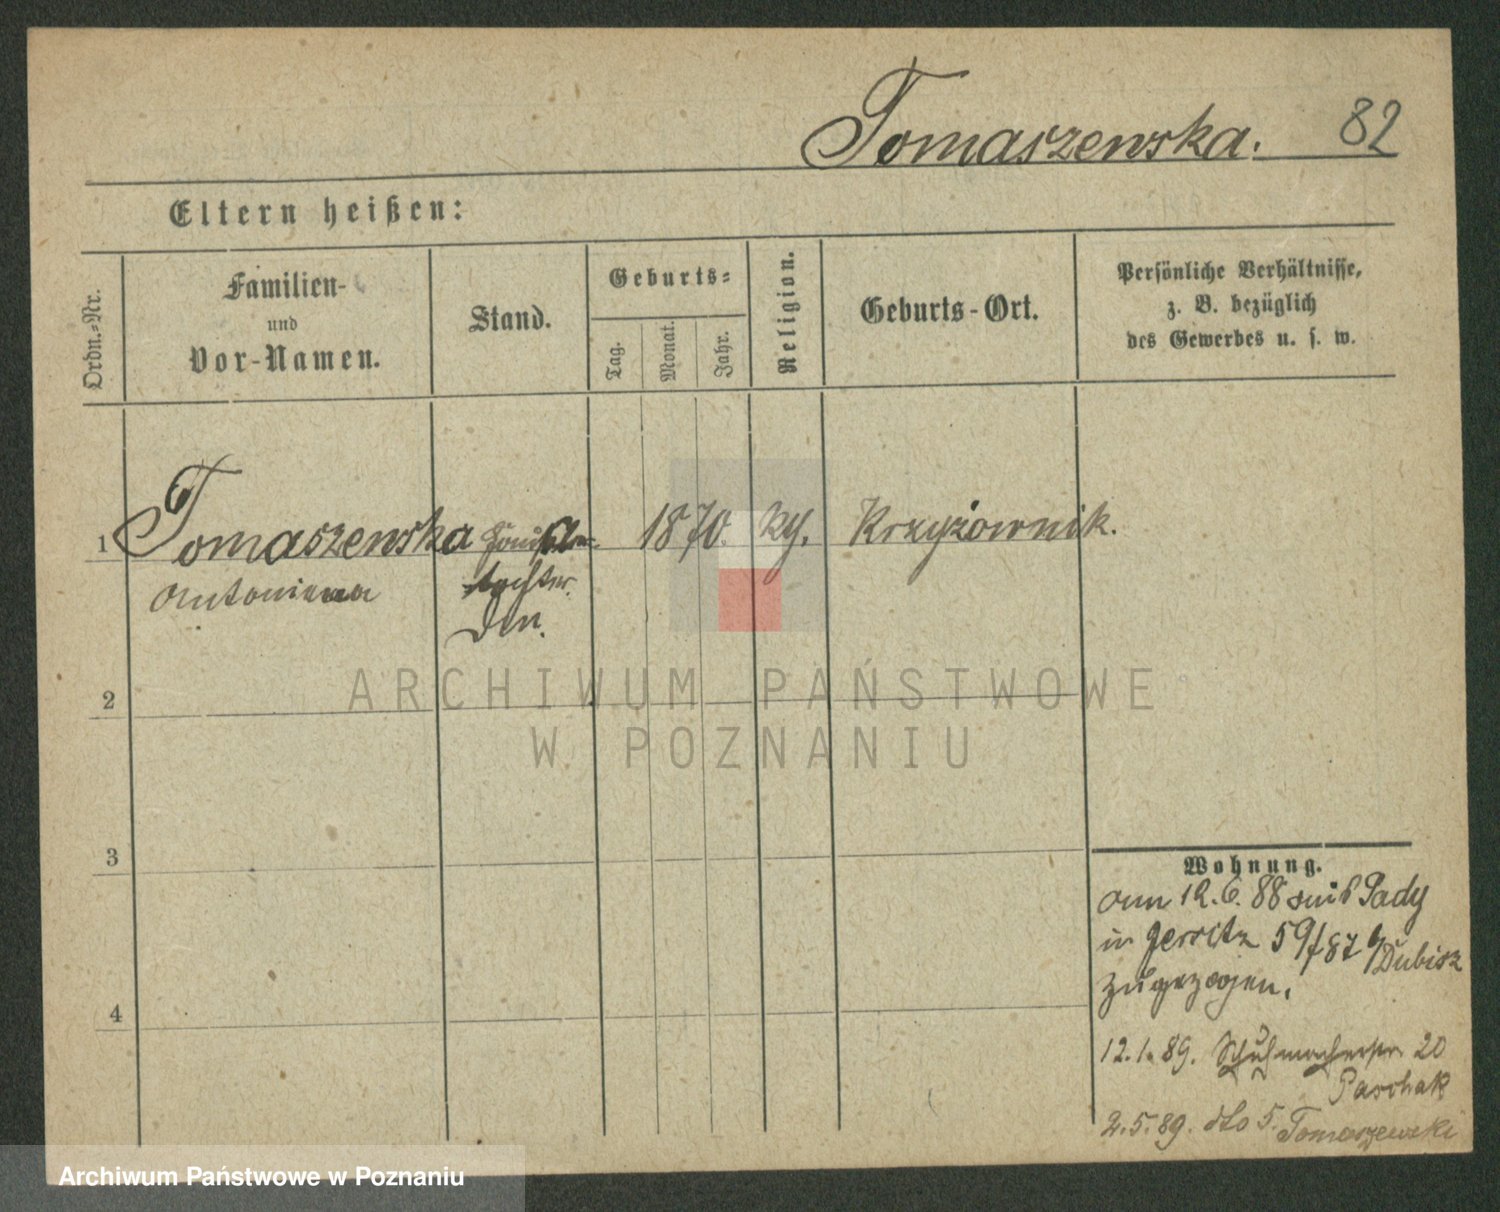 Tomaszewska. 82
Eltern heißen:
Ordn.=Nr.
Familien-
und
Vor-Namen.
Stand.
Geburts=
Tag.
Monat.
Jahr.
Religion.
Geburts-Ort.
Persönliche Verhältnisse,
z. B. bezüglich
des Gewerbes u. s. w.
1 Tomaszewska 1870. Krzyżownik.
Antonina tochter.
2
3
4
Wohnung.
am 12. 6. 88
in Jerzitz 59/87 b/Dubisz
zugezogen.
12. 1. 89. Schuhmacherstr 20
Paschak
2. 5. 89. dto 5. Tomaszewski
ARCHIWUM PAŃSTWOWE
W POZNANIU
Archiwum Państwowe w Poznaniu